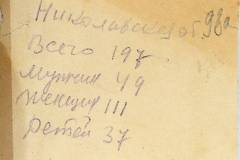 Николавская об. 98а
Всего 197
мужчин 49
женщин 111
детей 37